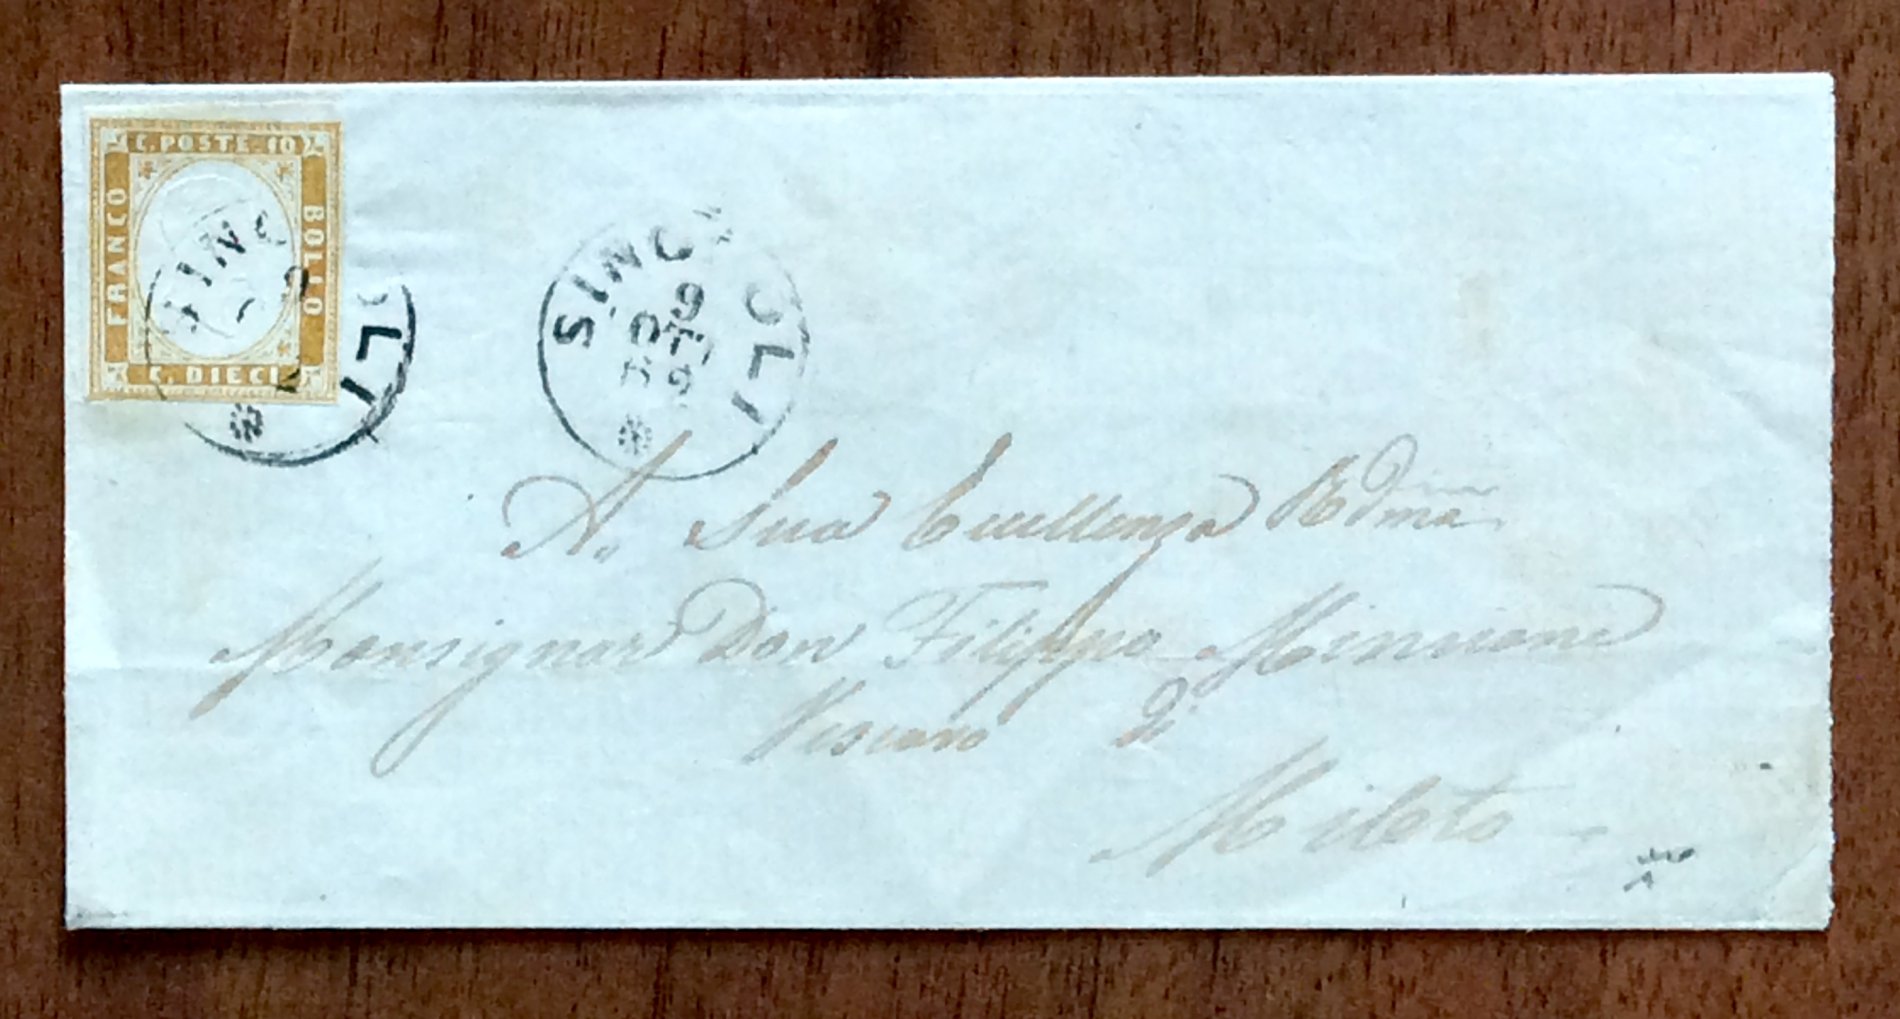 C. POSTE. 10
FRANCO
BOLLO
C. DIECI
SINC OLI
SINC OLI
9
OTT
62
A. Sua Eccellenza Rdma
Monsignore Don Filippo Mincione
Vescovo di
Mileto